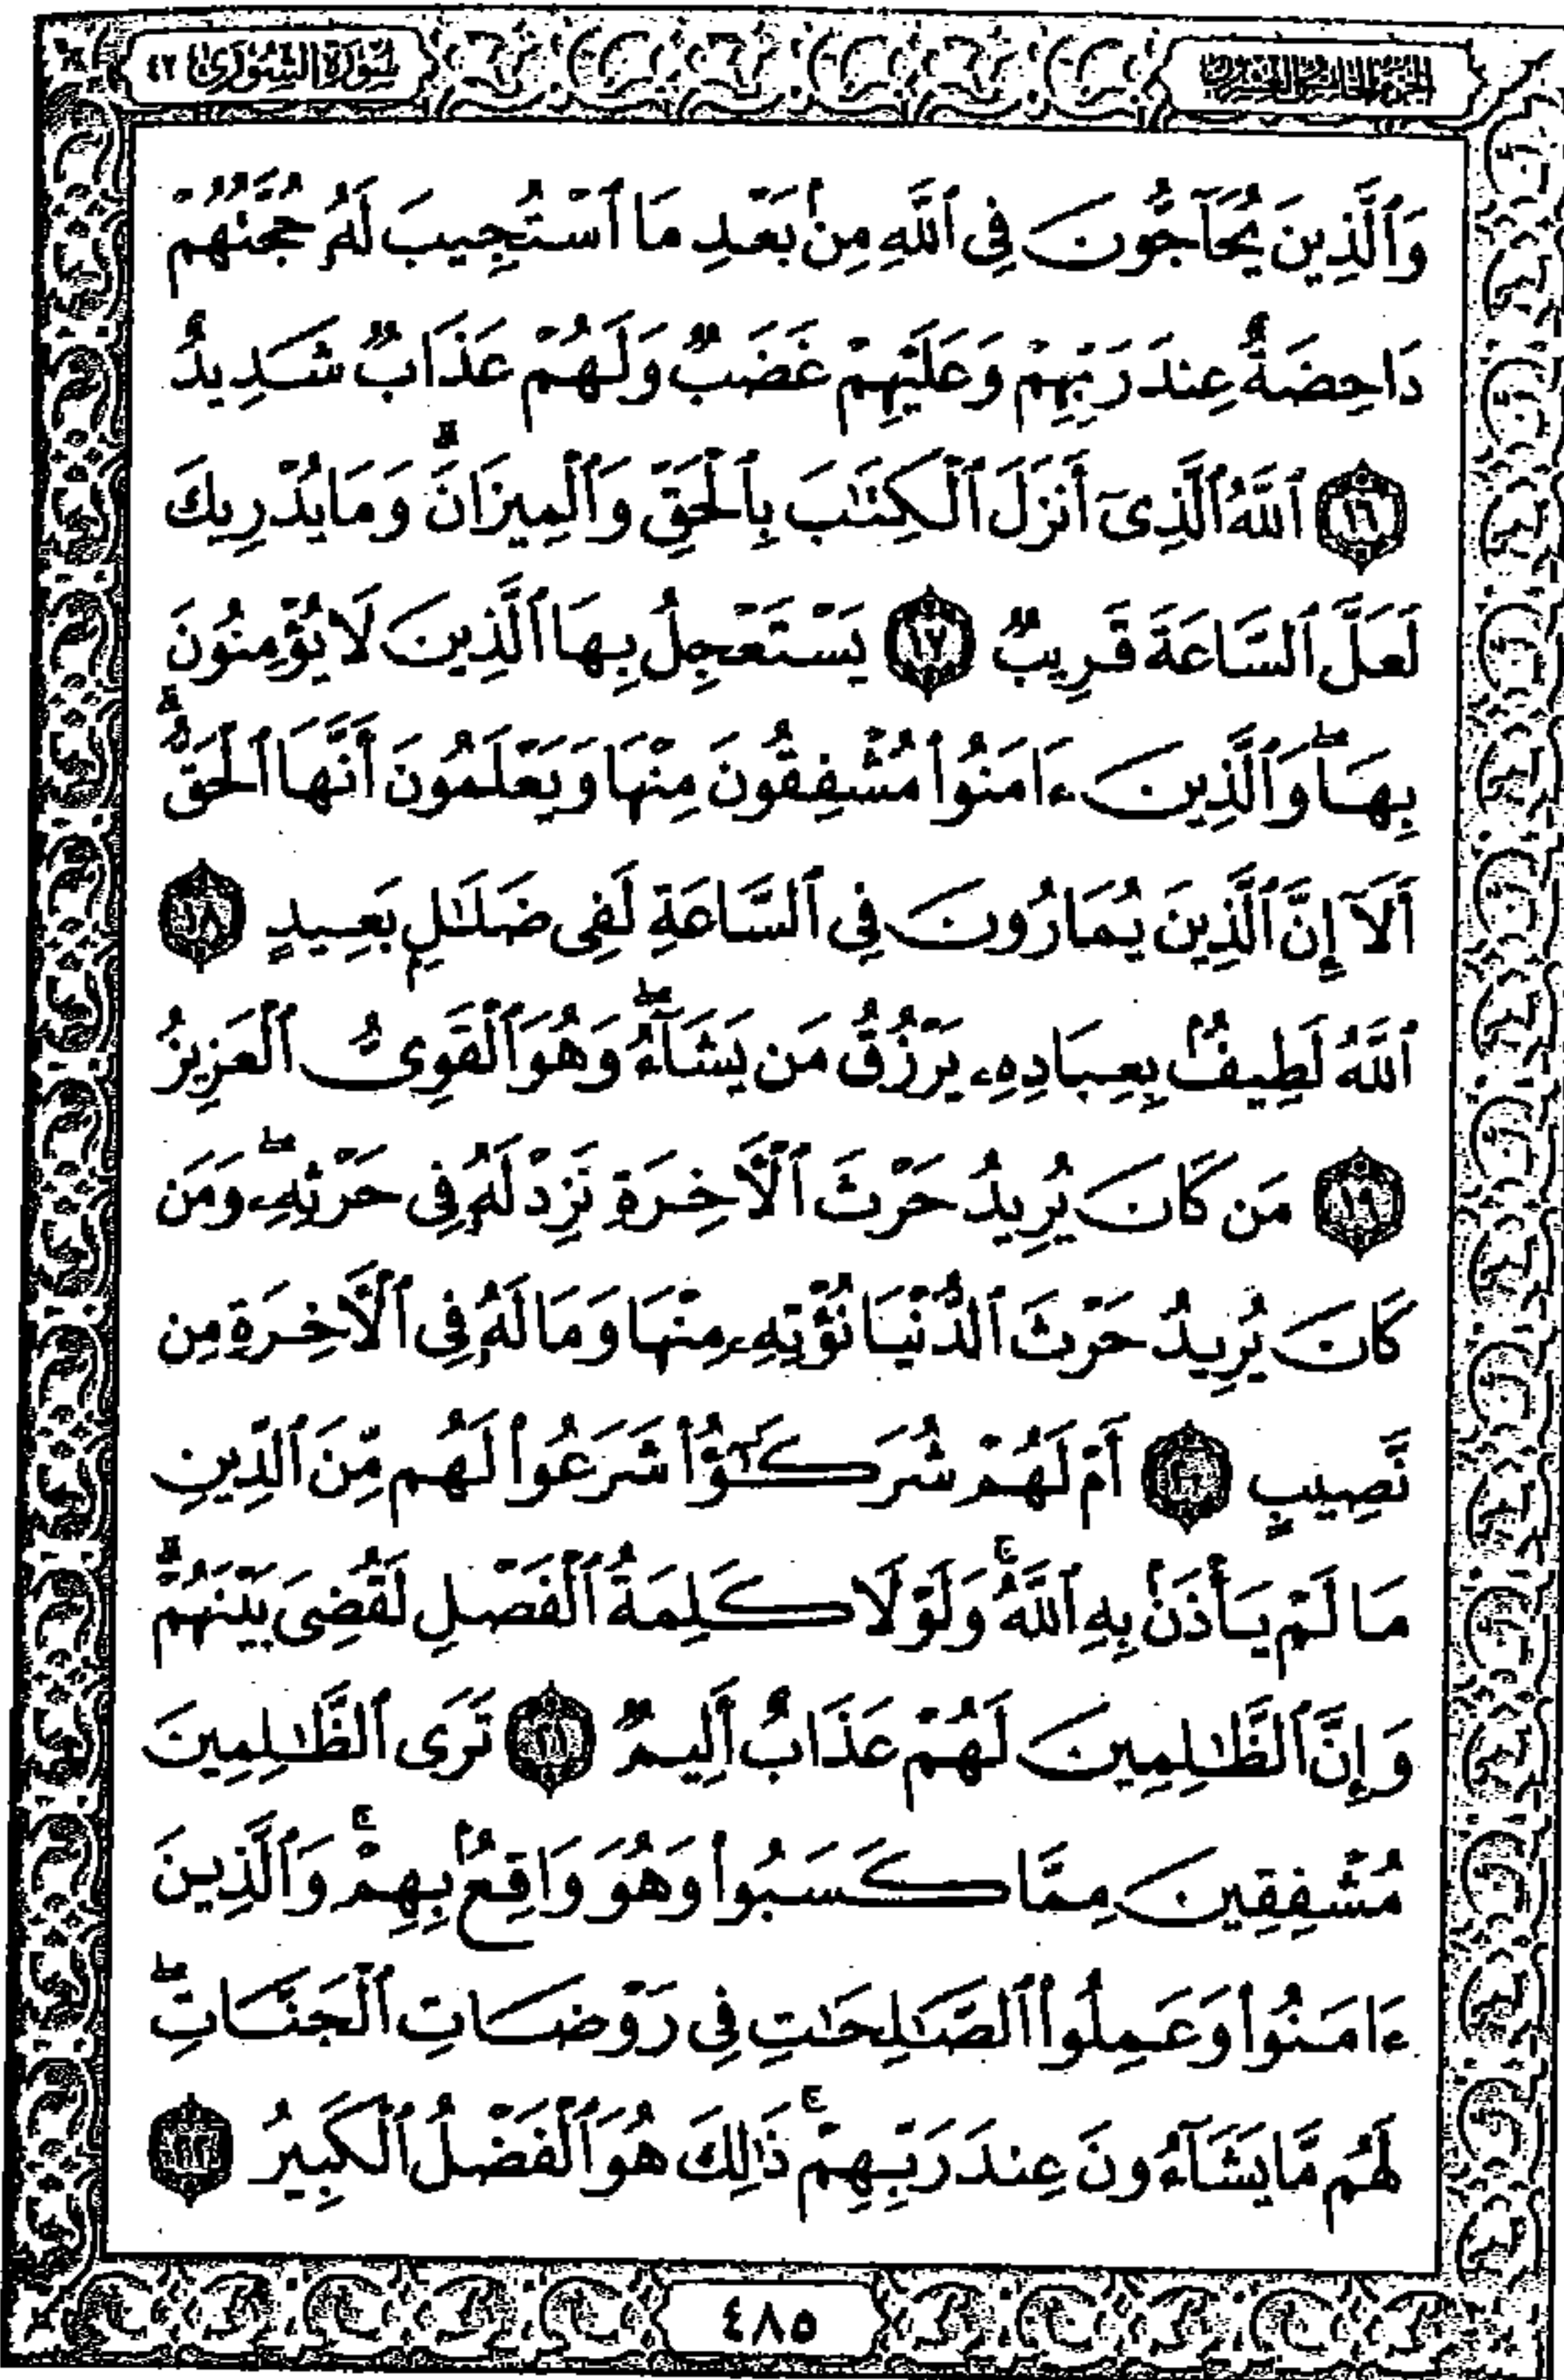 الجزء الخامس والعشرون
سورة الشورى ٤٢
وَٱلَّذِينَ يُحَآجُّونَ فِى ٱللَّهِ مِنۢ بَعْدِ مَا ٱسْتُجِيبَ لَهُۥ حُجَّتُهُمْ
دَاحِضَةٌ عِندَ رَبِّهِمْ وَعَلَيْهِمْ غَضَبٌ وَلَهُمْ عَذَابٌ شَدِيدٌ
١٦ ٱللَّهُ ٱلَّذِىٓ أَنزَلَ ٱلْكِتَـٰبَ بِٱلْحَقِّ وَٱلْمِيزَانَ ۗ وَمَا يُدْرِيكَ
لَعَلَّ ٱلسَّاعَةَ قَرِيبٌ ١٧ يَسْتَعْجِلُ بِهَا ٱلَّذِينَ لَا يُؤْمِنُونَ
بِهَا ۖ وَٱلَّذِينَ ءَامَنُوا۟ مُشْفِقُونَ مِنْهَا وَيَعْلَمُونَ أَنَّهَا ٱلْحَقُّ ۗ
أَلَآ إِنَّ ٱلَّذِينَ يُمَارُونَ فِى ٱلسَّاعَةِ لَفِى ضَلَـٰلٍۭ بَعِيدٍ ١٨
ٱللَّهُ لَطِيفٌۢ بِعِبَادِهِۦ يَرْزُقُ مَن يَشَآءُ ۖ وَهُوَ ٱلْقَوِىُّ ٱلْعَزِيزُ
١٩ مَن كَانَ يُرِيدُ حَرْثَ ٱلْـَٔاخِرَةِ نَزِدْ لَهُۥ فِى حَرْثِهِۦ ۖ وَمَن
كَانَ يُرِيدُ حَرْثَ ٱلدُّنْيَا نُؤْتِهِۦ مِنْهَا وَمَا لَهُۥ فِى ٱلْـَٔاخِرَةِ مِن
نَّصِيبٍ ٢٠ أَمْ لَهُمْ شُرَكَـٰٓؤُا۟ شَرَعُوا۟ لَهُم مِّنَ ٱلدِّينِ
مَا لَمْ يَأْذَنۢ بِهِ ٱللَّهُ ۚ وَلَوْلَا كَلِمَةُ ٱلْفَصْلِ لَقُضِىَ بَيْنَهُمْ ۗ
وَإِنَّ ٱلظَّـٰلِمِينَ لَهُمْ عَذَابٌ أَلِيمٌ ٢١ تَرَى ٱلظَّـٰلِمِينَ
مُشْفِقِينَ مِمَّا كَسَبُوا۟ وَهُوَ وَاقِعٌۢ بِهِمْ ۗ وَٱلَّذِينَ
ءَامَنُوا۟ وَعَمِلُوا۟ ٱلصَّـٰلِحَـٰتِ فِى رَوْضَاتِ ٱلْجَنَّاتِ ۖ
لَهُم مَّا يَشَآءُونَ عِندَ رَبِّهِمْ ۚ ذَٰلِكَ هُوَ ٱلْفَضْلُ ٱلْكَبِيرُ ٢٢
٤٨٥